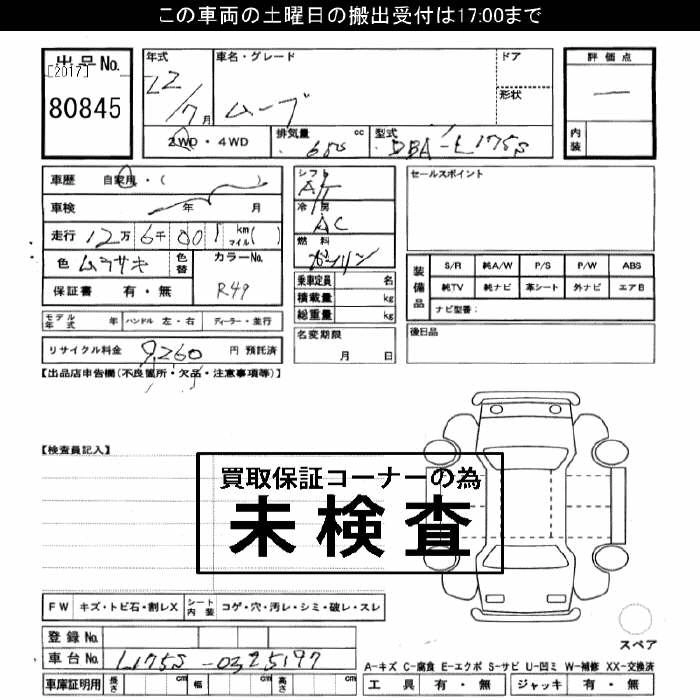 この車両の土曜日の搬出受付は17:00まで
出品No.
[2017]
80845
年式 22/7月
車名・グレード ムーブ
ドア
形状
2WD・4WD
排気量 cc 型式 DBA-L175S
評価点
内装
車歴 自家用・( )
車検 年 月
走行 12万 6千 001 km マイル( )
色 ムラサキ 色替 カラーNo. R49
保証書 有・無
モデル年式 年 ハンドル 左・右 ディーラー・並行
リサイクル料金 9,260 円 預託済
シフト AT
冷房 AC
燃料 ガソリン
乗車定員 名
積載量 kg
総重量 kg
名変期限 月 日
セールスポイント
装備品
S/R 純A/W P/S P/W ABS
純TV 純ナビ 革シート 外ナビ エアB
ナビ型番:
後日品
【出品店申告欄(不良箇所・欠品・注意事項等)】
【検査員記入】
買取保証コーナーの為
未検査
FW キズ・トビ石・割レX シート内装 コゲ・穴・汚レ・シミ・破レ・スレ
登録No.
車台No. L175S-0325197
車庫証明用 長さ cm 幅 cm 高さ cm
スペア
A-キズ C-腐食 E-エクボ S-サビ U-凹ミ W-補修 XX-交換済
工具 有・無 ジャッキ 有・無